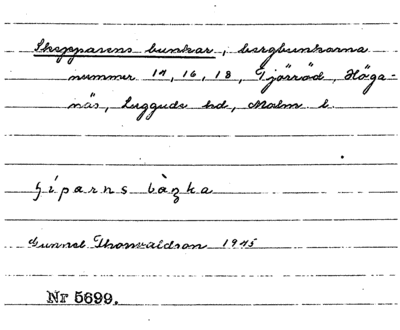 Skepparens bunkar, bergbunkarna
nummer 14, 16, 18, Tjörröd, Höga-
näs, Luggude hd, Malm l.
bàzka
Gunnel Thorvaldson 1945
Nr 5699.